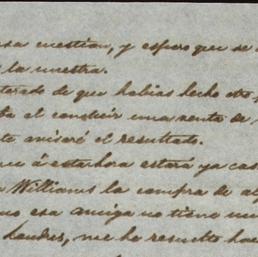 esa cuestion, y espero que se
la nuestra.
terado de que habias hecho otro
al concluir una venta de
te avisaré el resultado.
que á esta hora estará ya
Williams la compra de
esa amiga no tiene
Londres, me he resuelto